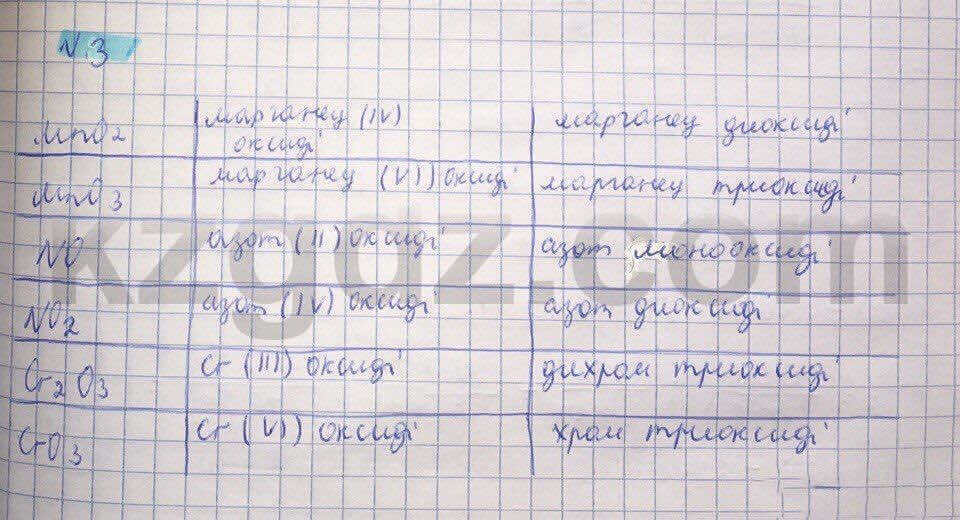 №3
MnO2 марганец (IV) оксиді марганец диоксиді
MnO3 марганец (VI) оксиді марганец триоксиді
NO азот (II) оксиді азот монооксиді
NO2 азот (IV) оксиді азот диоксиді
Cr2O3 Cr (III) оксиді дихром триоксиді
CrO3 Cr (VI) оксиді хром триоксиді
kzgdz.com